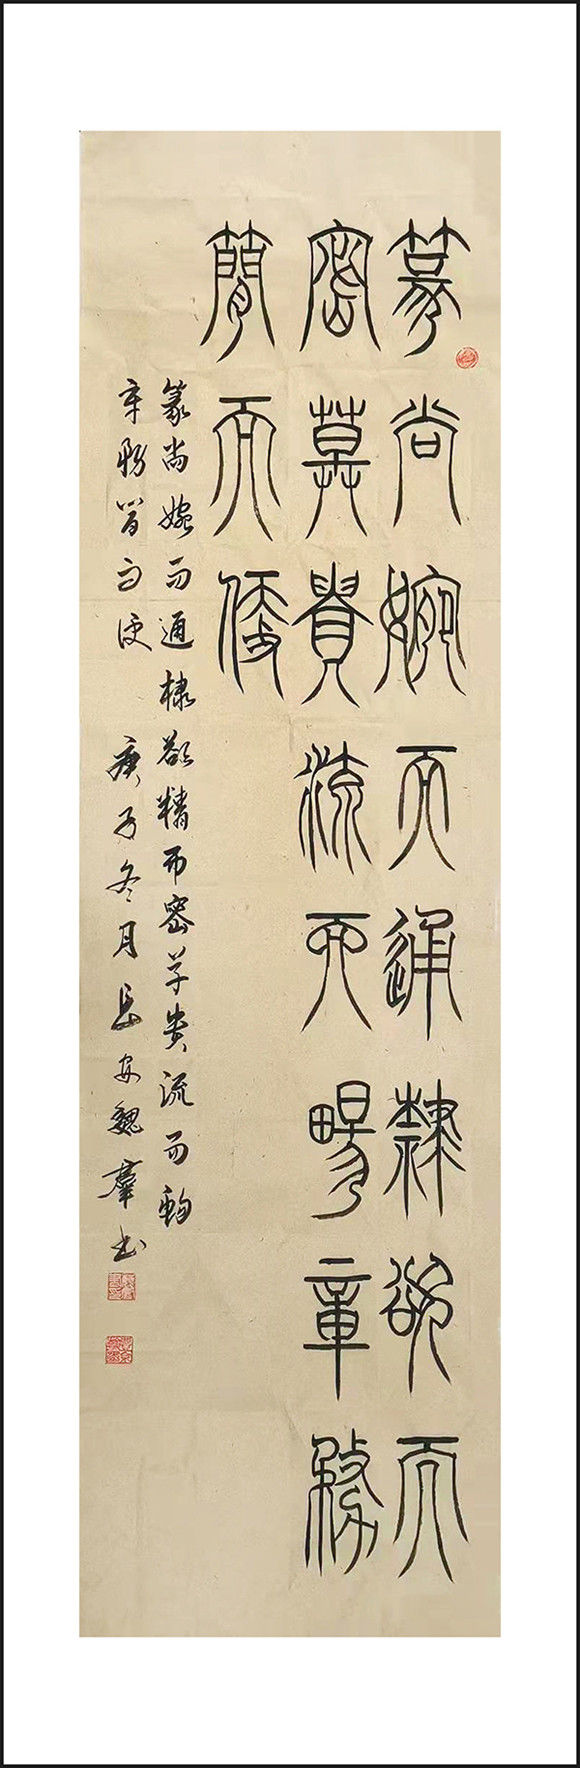 篆尚婉而通隸欲而
密草貴流而暢章務
簡而便
篆尚婉而通隸欲精而密草貴流而暢
章務簡而便 庚子冬月長安魏羣书